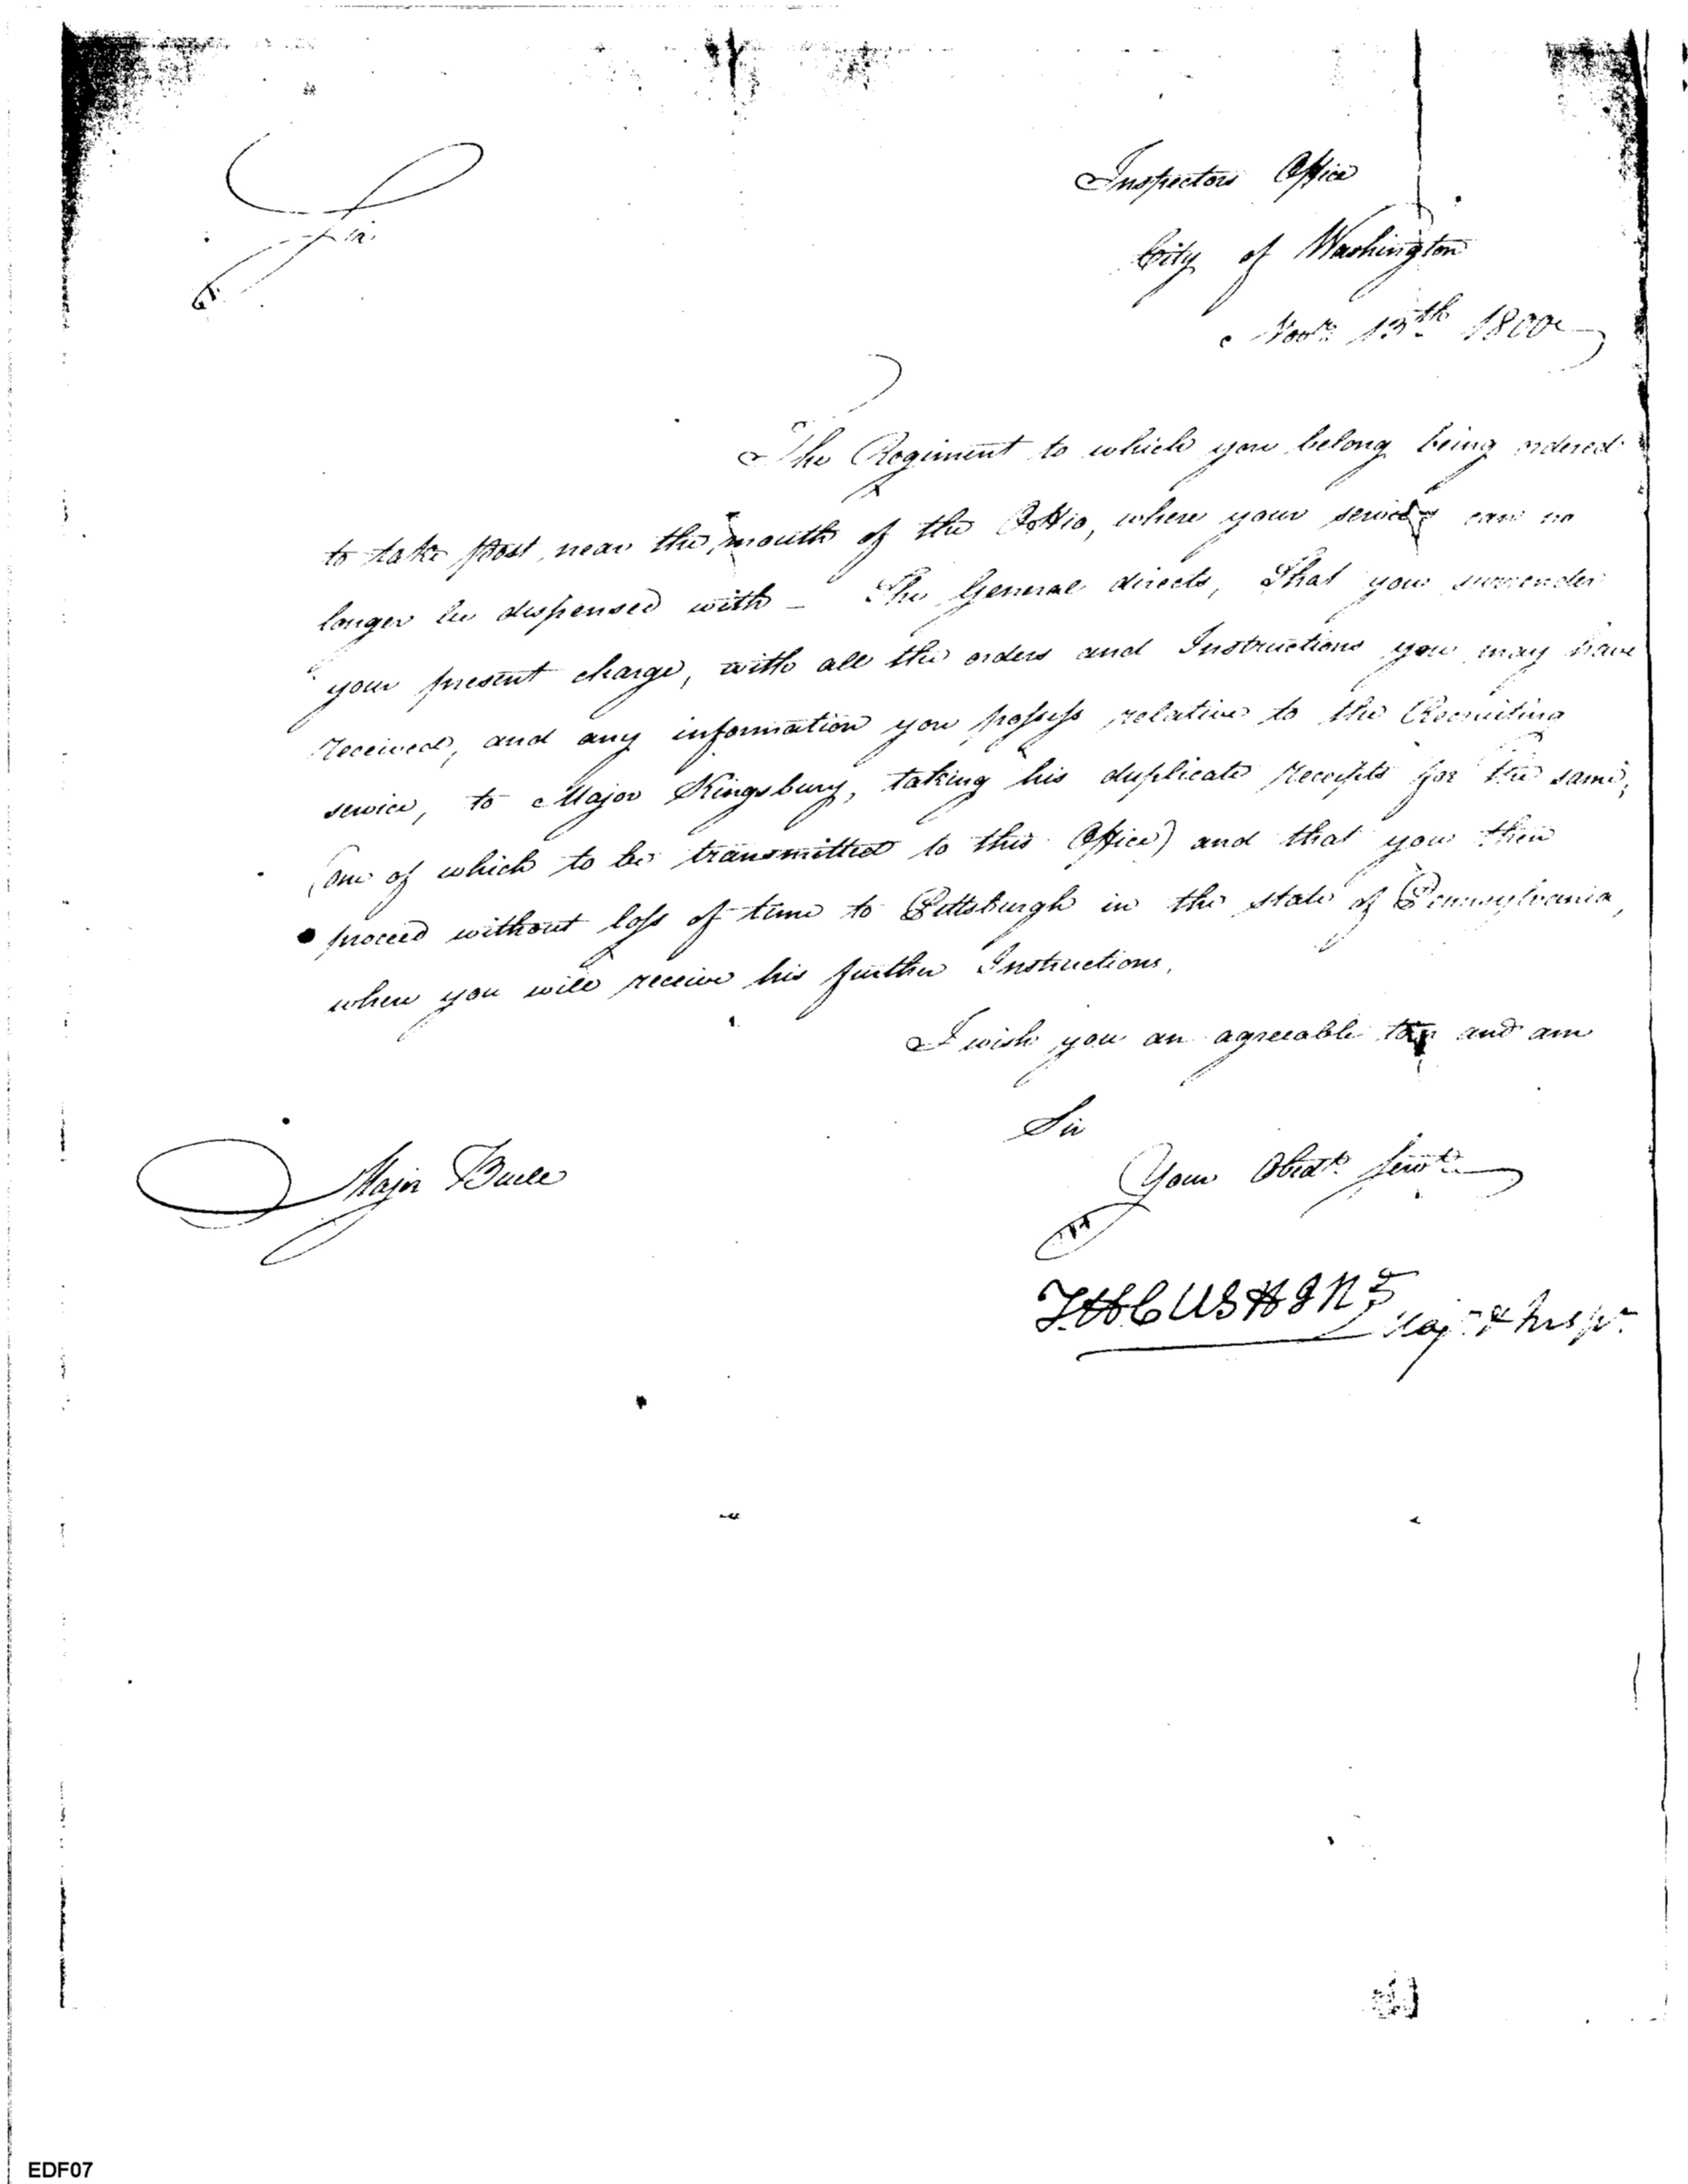 Inspectors Office
City of Washington
Novr. 13th 1800
Sir
The Regiment to which you belong being ordered
to take post near the mouth of the Ohio, where your services can no
longer be dispensed with _ The General directs, That you surrender
your present charge, with all the orders and Instructions you may have
received, and any information you possess relative to the Recruiting
service, to Major Kingsbury, taking his duplicate receipts for the same,
(one of which to be transmitted to this Office) and that you then
proceed without loss of time to Pittsburgh in the state of Pennsylvania,
where you will receive his further Instructions.
I wish you an agreeable and am
Sir
Your Obedt. Servt.
Major Buell
T.H.CUSHING
Majr. & Inspr.
EDF07